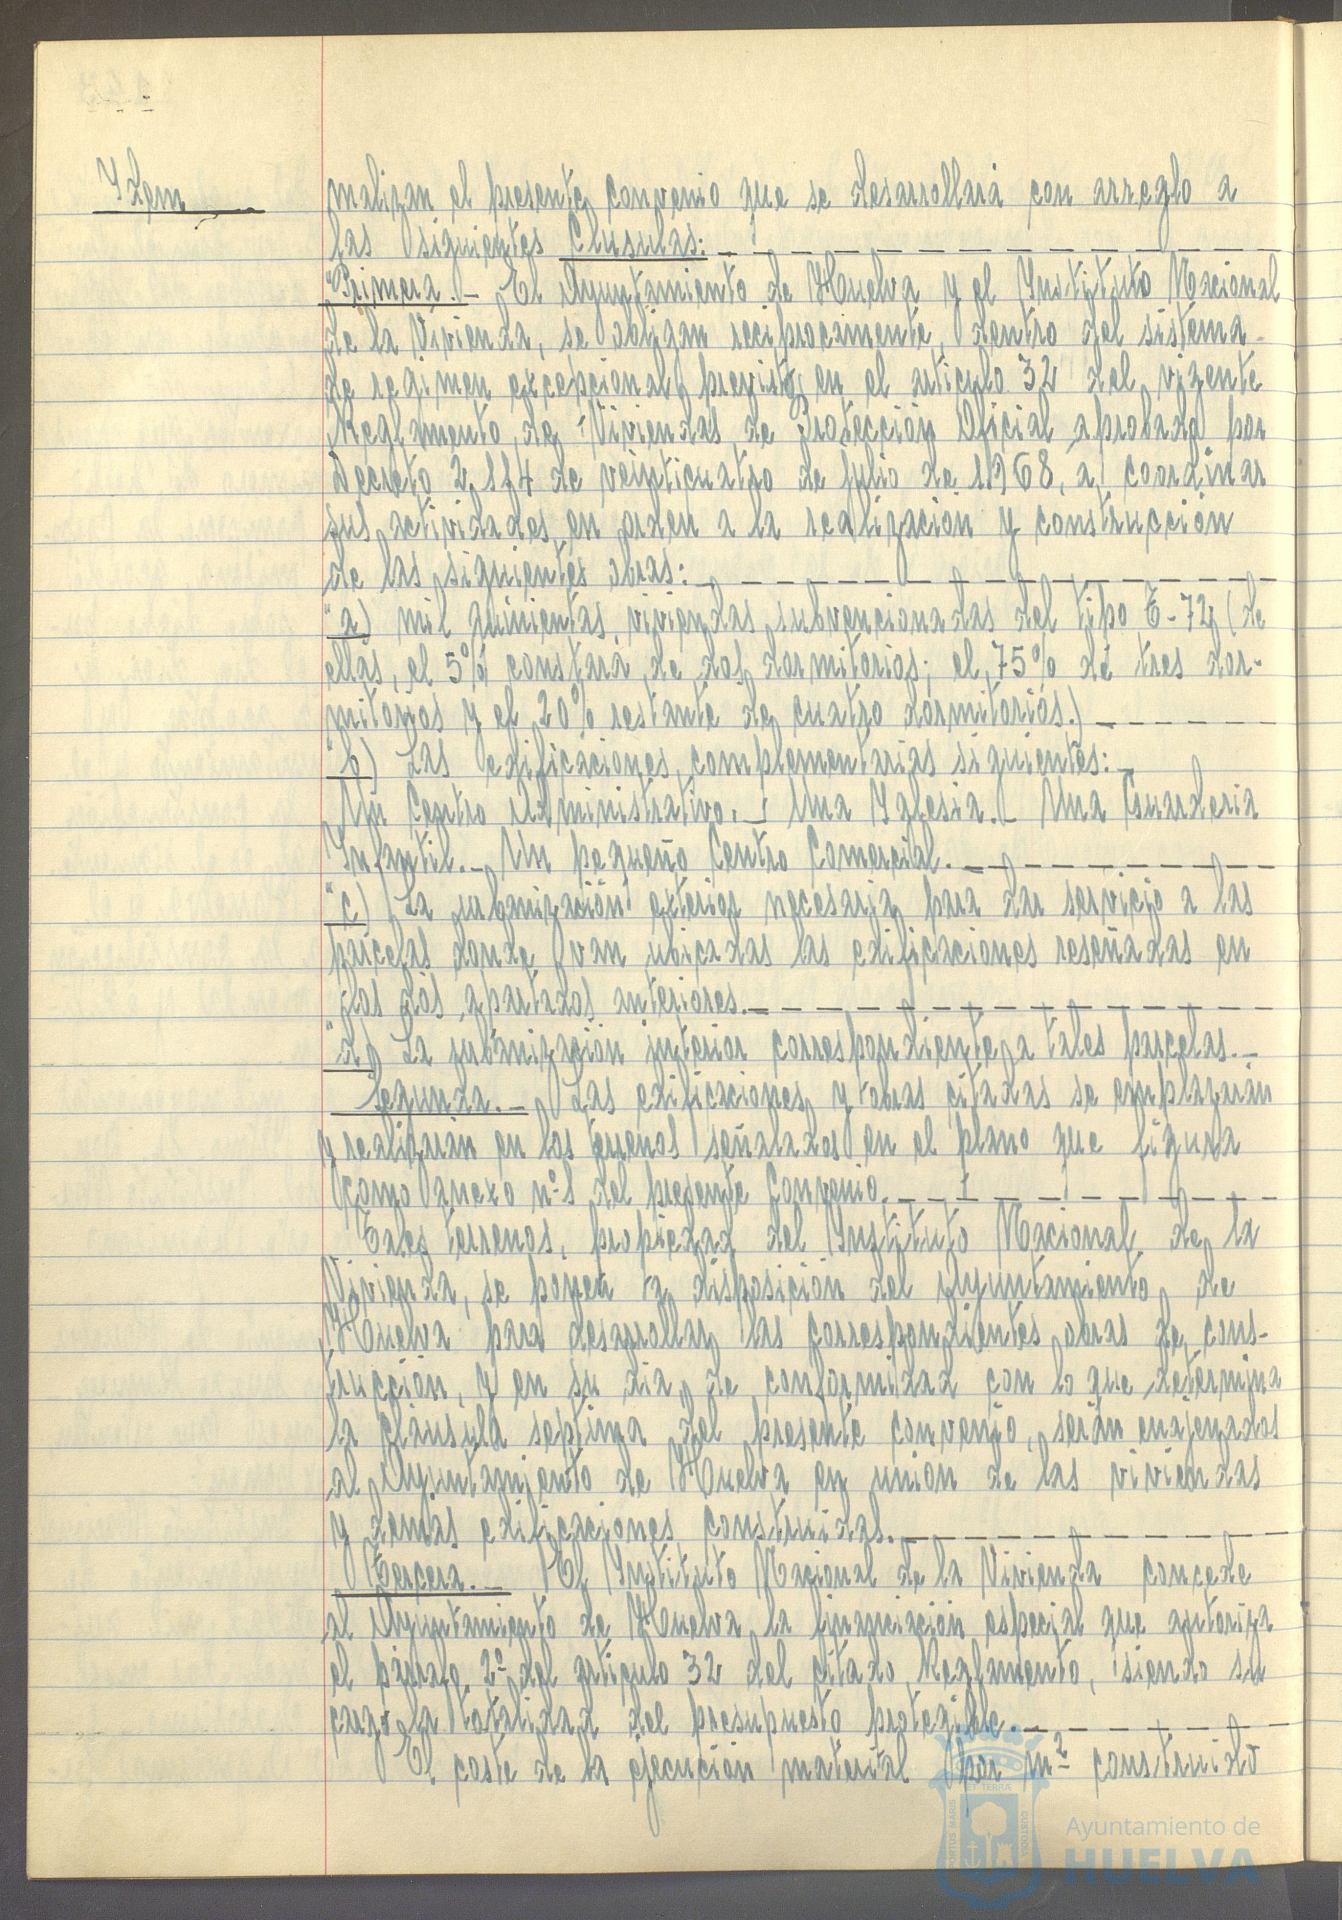 Idem
malizan el presente convenio que se desarrollará con arreglo a
las siguientes Clusulas:
"Primera.- El Ayuntamiento de Huelva y el Instituto Nacional
de la Vivienda, se obligan reciprocamente, dentro del sistema
de regimen excepcional previsto en el articulo 32 del vigente
Reglamento de Viviendas de Protección Oficial aprobado por
Decreto 2.114 de veinticuatro de Julio de 1968, a coordinar
sus actividades en orden a la realización y construcción
de las siguientes obras:
"a) mil quinientas viviendas subvencionadas del tipo E-72 (de
ellas, el 5% constará de dos dormitorios; el 75% de tres dor-
mitorios y el 20% restante de cuatro dormitorios.)
"b) Las edificaciones complementarias siguientes:
Un Centro Administrativo.- Una Iglesia.- Una Guarderia
Infantil.- Un pequeño Centro Comercial.
"c) La urbanización exterior necesaria para dar servicio a las
parcelas donde van ubicadas las edificaciones reseñadas en
los dos apartados anteriores.
"d) La urbanización interior correspondiente a tales parcelas.-
Segunda.- Las edificaciones y obras citadas se emplazarán
y realizarán en los terrenos señalados en el plano que figura
como anexo nº 1 del presente Convenio.
Tales terrenos, propiedad del Instituto Nacional de la
Vivienda, se ponen a disposición del Ayuntamiento de
Huelva para desarrollar las correspondientes obras de cons-
trucción, y en su dia, de conformidad con lo que determina
la cláusula septima del presente convenio, serán enajenados
al Ayuntamiento de Huelva en union de las viviendas
y demas edificaciones construidas.
Tercera.- El Instituto Nacional de la Vivienda concede
al Ayuntamiento de Huelva la financiación especial que autoriza
el párrafo 2º del articulo 32 del citado Reglamento, siendo su
cargo la totalidad del presupuesto protegible.
El coste de la ejecución material por m² construido
PORTUS MARIS
ET TERRÆ
CUSTODIA
Ayuntamiento de
HUELVA